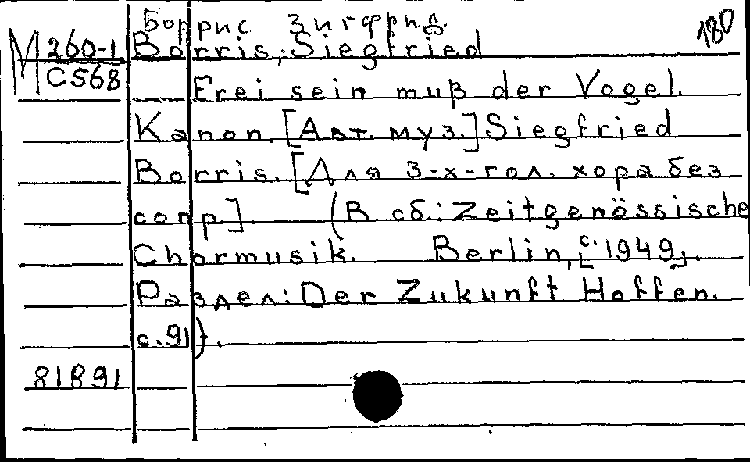 Боррис Зигфрид.
180
M 260-1 Borris, Siegfried
C568 Frei sein muß der Vogel.
Kanon. [Авт. муз.] Siegfried
Borris. [Для 3-х-гол. хора без
сопр]. (В сб.: Zeitgenössische
Chormusik. Berlin, [с. 1949].
Раздел: Der Zukunft Hoffen.
с.91).
81891